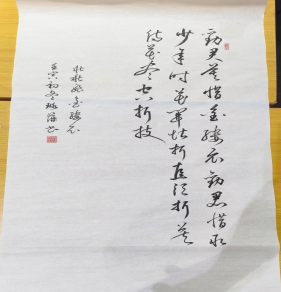 劝君莫惜金缕衣劝君惜取
少年时花开堪折直须折莫
待花无空折枝
杜秋娘金缕衣
壬寅初冬书